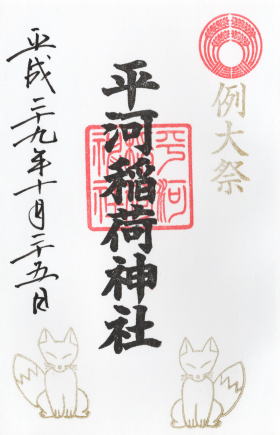 例大祭
平河稲荷神社
平河
平成二十九年十月二十五日